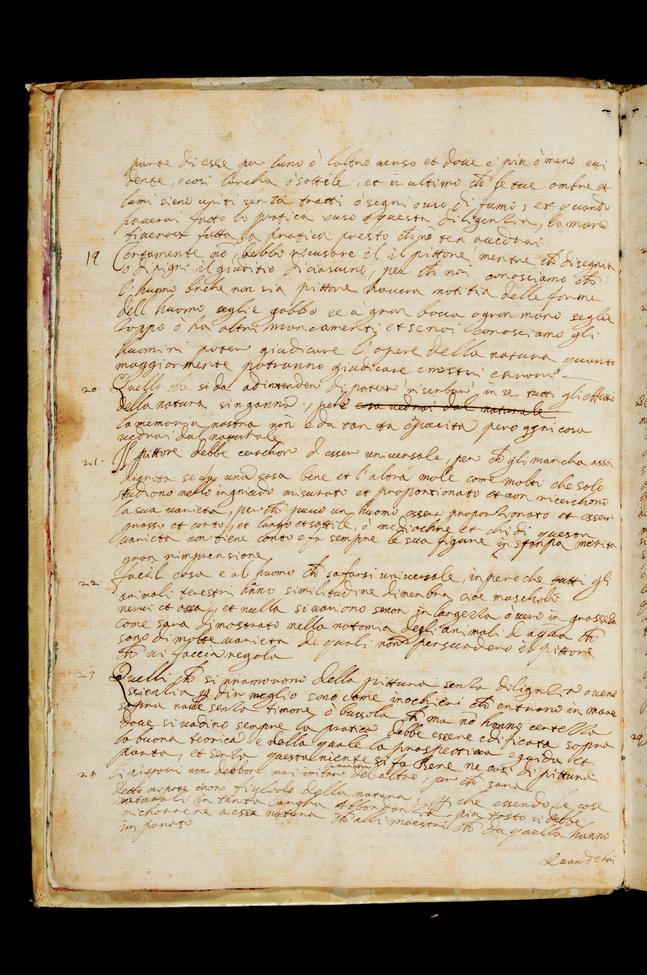 parte di esse per luno ò laltro uerso et doue e più ò meno eui
dente, e così larcha ò sottile, et in ultimo che le tue ombre et
lumi sieno uniti senza tratti ò segni a uso di fumo, et quando
haverai fatto la pratica e uso a questa diligentia, la mano
ti verra fatta la pratica presto che nò ten auedrai
19 Certamente nò debbo ricusare il pittore, mentre che disegna
ò dipigni il giuditio di ciascuno, per che noi conosciamo che
l'huomo benche non sia pittore havera notitia delle forme
dell huomo segli e gobbo se a gran bocca o gran mano segli e
zoppo ò ha altri mancamenti, et se noi conosciamo gli
huomini poter giudicare l'opere della natura quanto
maggiormente potranno giudicare e nostri errori
20 Quello che si da ad intender di poter riserbar in se tutti gli effetti
della natura singanna, però cosa uedrai dal naturale
la memoria nostra non è da tanta capacita però ogni cosa
uedrai dal naturale
21. Il pittore debbe cerchar d'esser uniuersale, per che gli mancha assai
dignita se fa una cosa bene et l'altra male come molti che solo
studiono nello ignudo misurato et proportionato et non ricerchono
la sua varieta, per che puo un huomo esser proportionato et esser
grosso et corto, et lungo et sottile, ò mediocre et chi di questa
varieta non tiene conto fa sempre le sua figure in stampa merita
gran riprensione
22 facil cosa e al huomo che sa farsi uniuersale, imperoche tutti gli
animali terestri hano similitudine di membra, cioe muscholi
nerui et ossa, et nulla si variono senon in largezza ò uero in grosseza
come sara dimostrato nella notomia degli animali d'aqua che
sono di molte varieta de quali non persuadero il pittore
che ui faccia regola
23 Quelli che si innamorono della pittura senza diligentia ouero
scientia per dir meglio sono come i nochieri che entrano in mare
sopra naue senza timone, ò bussola, che mai no hanno certezza
doue si vadino sempre la pratica debbe essere edificata sopra
la buona teorica, e della quale la prospettiua e guida et
porta, et senza questa niente si fa bene ne casi di pittura
24 li pittori non debbon mai imitar la maniera del altro per che saranno
detto nipote et non figliolo della natura, per che essendo le cose
naturali in tanta largha abbondantia più tosto si debbe
ricorrere a essa natura che alli maestri che da quella hanno
imparato
Quando tu